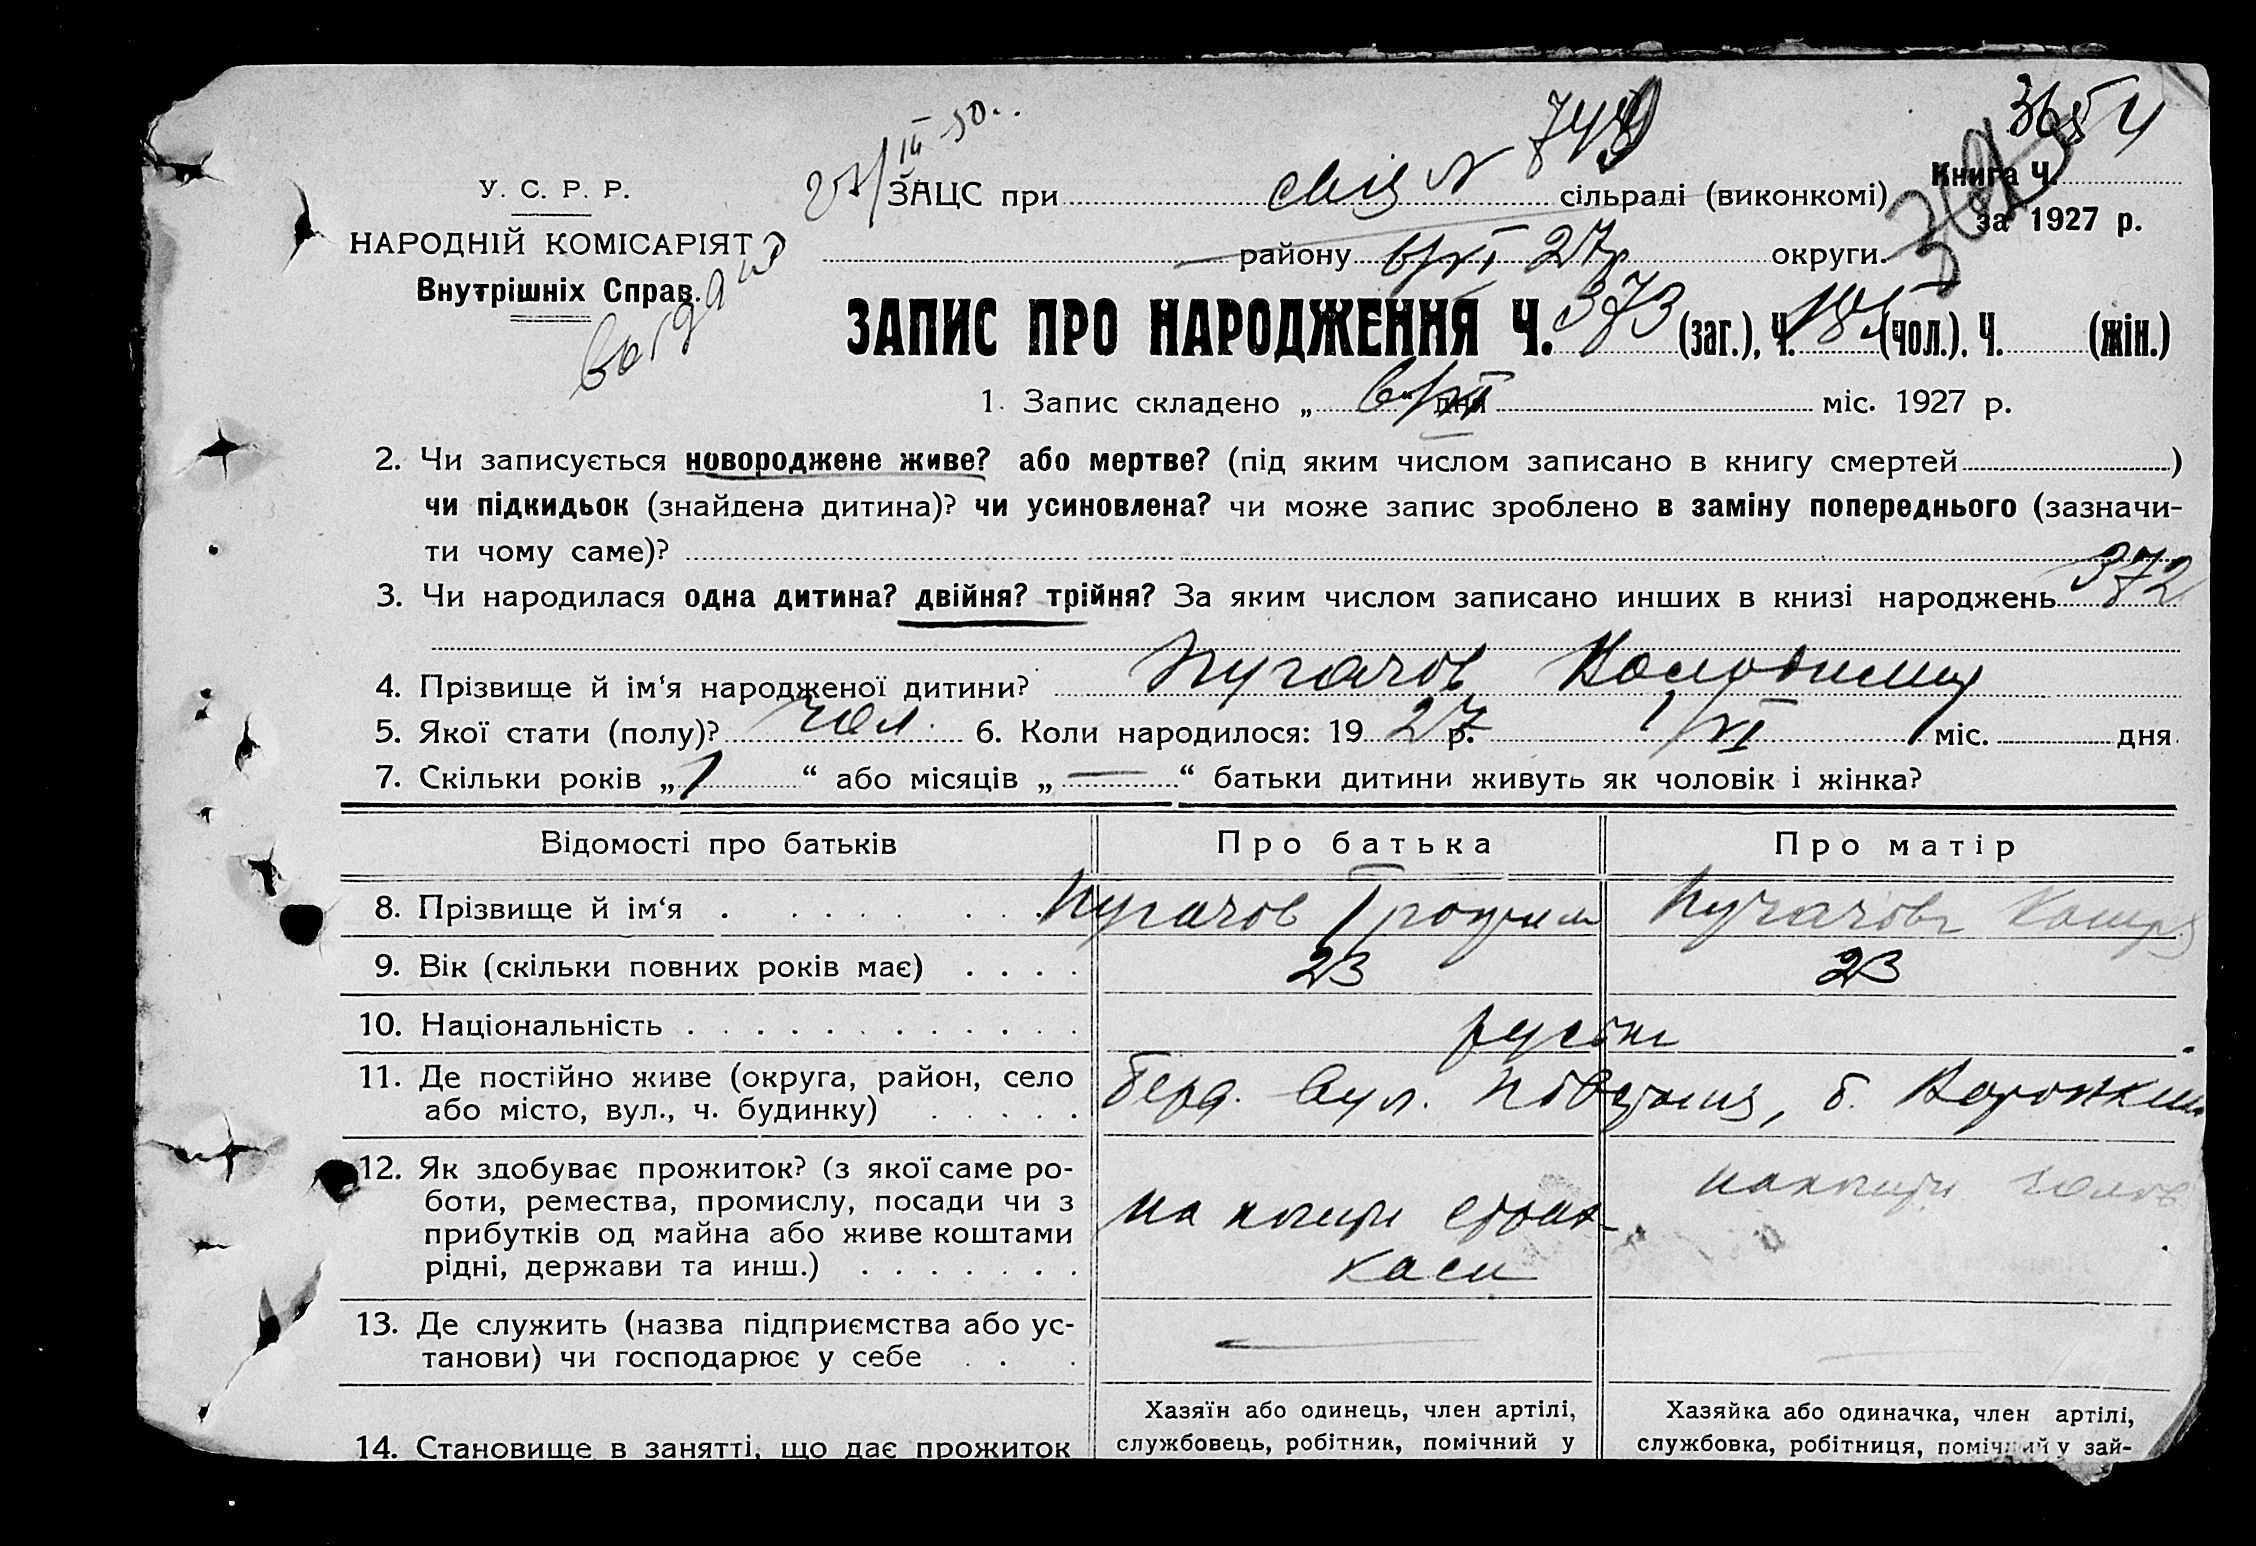 3654
749
27/III 50.
У. С. Р. Р.
ЗАЦС при сільраді (виконкомі)
Книга Ч.
за 1927 р.
НАРОДНІЙ КОМІСАРІЯТ
Внутрішніх Справ.
району 6/VI 27р округи.
ЗАПИС ПРО НАРОДЖЕННЯ Ч. 373 (заг.), Ч. (чол.), Ч. (жін.)
1. Запис складено „ 6/VI “ дня міс. 1927 р.
2. Чи записується новороджене живе? або мертве? (під яким числом записано в книгу смертей )
чи підкидьок (знайдена дитина)? чи усиновлена? чи може запис зроблено в заміну попереднього (зазначи-
ти чому саме)?
3. Чи народилася одна дитина? двійня? трійня? За яким числом записано инших в книзі народжень 372
4. Прізвище й ім'я народженої дитини? Пугачов Володимир
5. Якої стати (полу)? чол. 6. Коли народилося: 19 27 р. 1/VI міс. дня
7. Скільки років „ 1 “ або місяців „ — “ батьки дитини живуть як чоловік і жінка?
Відомості про батьків Про батька Про матір
8. Прізвище й ім'я Пугачов Трохим Пугачова
9. Вік (скільки повних років має) 23 23
10. Національність
11. Де постійно живе (округа, район, село Берд. вул.
або місто, вул., ч. будинку)
12. Як здобуває прожиток? (з якої саме ро-
боти, ремества, промислу, посади чи з на кошти страх
прибутків од майна або живе коштами
рідні, держави та инш.) каси
13. Де служить (назва підприємства або ус- —
танови) чи господарює у себе
14. Становище в занятті, що дає прожиток
Хазяїн або одинець, член артілі,
службовець, робітник, помічний у
Хазяйка або одиначка, член артілі,
службовка, робітниця, помічний у зай-